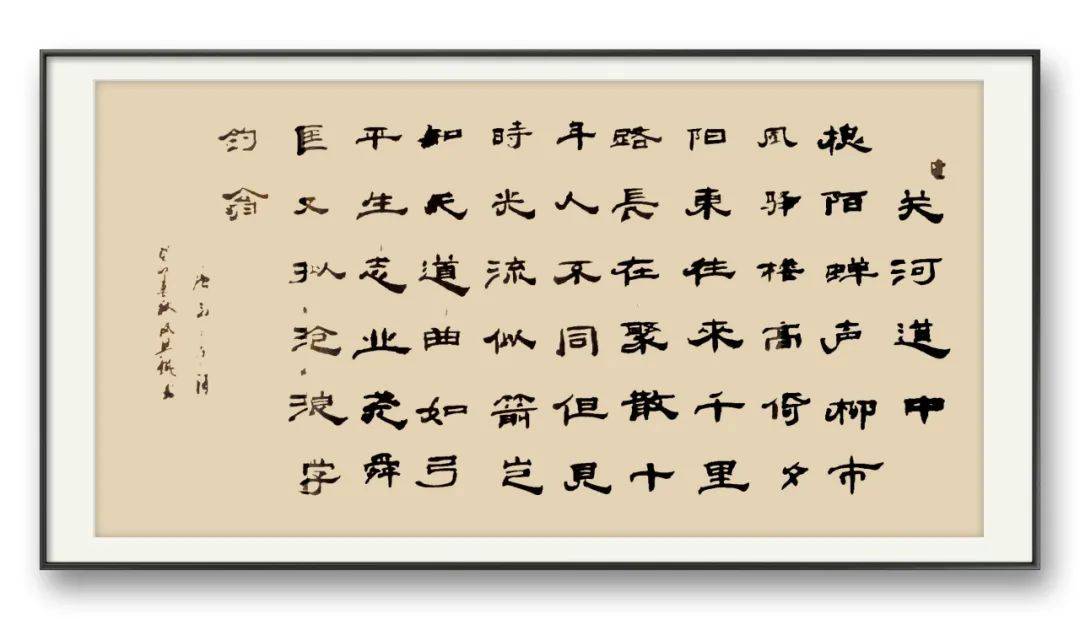 关河道中
槐陌蝉声柳市
风驿楼高倚夕
阳東往來千里
路長在聚散十
年人不同但見
時光流似箭岂
知天道曲如弓
平生志业尧舜
匡又拟沧浪学
钓翁